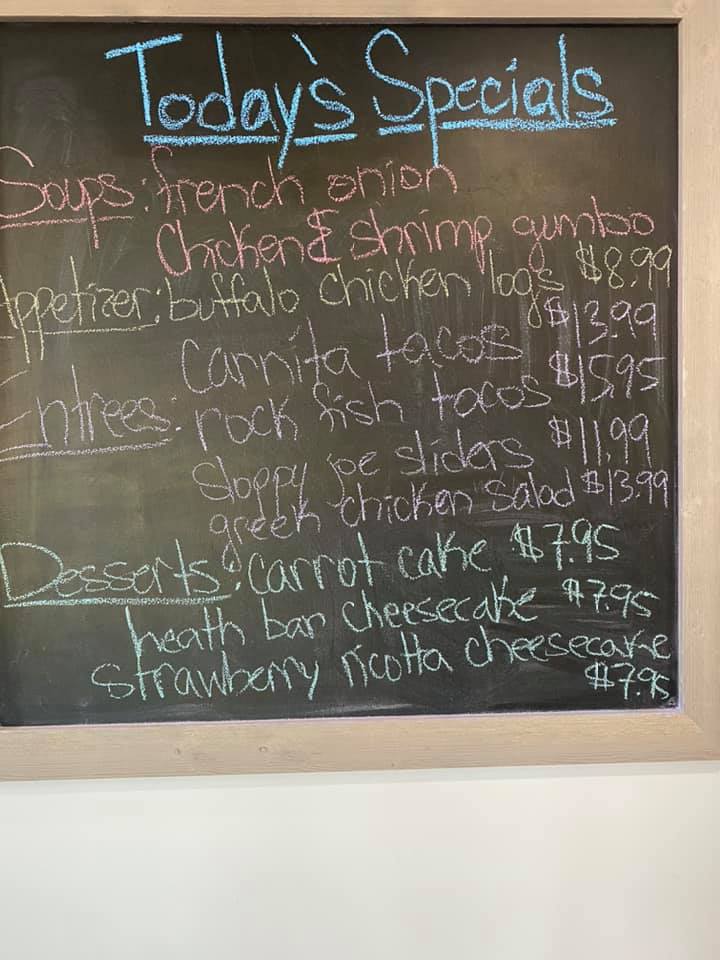 Today's Specials
Soups: french onion
chicken & shrimp gumbo
Appetizer: buffalo chicken logs $8.99
Carnita tacos $13.99
Entrees: rock fish tacos $15.95
sloppy joe sliders $11.99
greek chicken salad $13.99
Desserts: carrot cake $7.95
heath bar cheesecake $7.95
strawberry ricotta cheesecake
$7.95